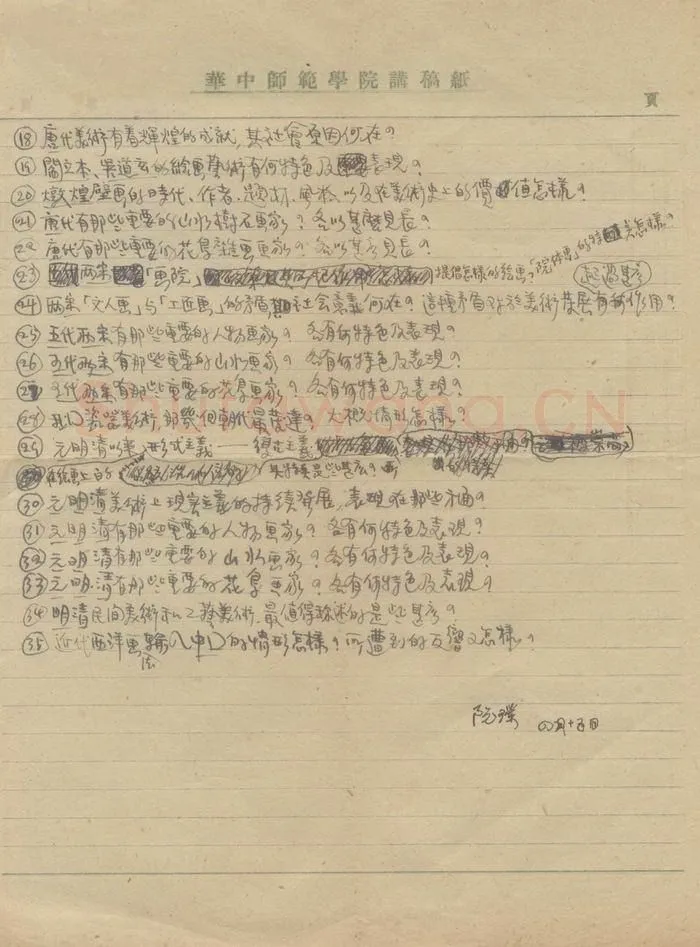 華中師範學院講稿紙
頁
⑱ 唐代美術有着輝煌的成就,其社會原因何在?
⑲ 閻立本、吳道玄的繪画藝術有何特色及表現?
⑳ 燉煌壁画的時代、作者、題材、風格以及在美術史上的價值怎樣?
㉑ 唐代有那些重要的山水樹石画家?各以甚麽見長?
㉒ 唐代有那些重要的花鳥雜画画家?各以甚麽見長?
㉓ 两宋「画院」提倡怎樣的繪画?「院体画」的特
㉔ 两宋「文人画」与「工匠画」的矛盾社会意義何在?這種矛盾对於美術發展有何作用?
㉕ 五代两宋有那些重要的人物画家?各有何特色及表現?
㉖ 五代两宋有那些重要的山水画家?各有何特色及表現?
㉗ 五代两宋有那些重要的花鳥画家?各有何特色及表現?
㉘ 瓷器美術,那幾個朝代最發達?大概情形怎樣?
㉙ 元明清以來形式主義——復古主義
在繪画上的 其特徵是些甚麽?
㉚ 元明清美術上現实主義的持续發展,表現在那些方面?
㉛ 元明清有那些重要的人物画家?各有何特色及表現?
㉜ 元明清有那些重要的山水画家?各有何特色及表現?
㉝ 元明清有那些重要的花鳥画家?各有何特色及表現?
㉞ 明清民间美術和工藝美術,最值得珍术的是些甚麽?
㉟ 近代西洋画法輸入中国的情形怎樣?所遭到的反響又怎樣?
阮璞 四月十五日